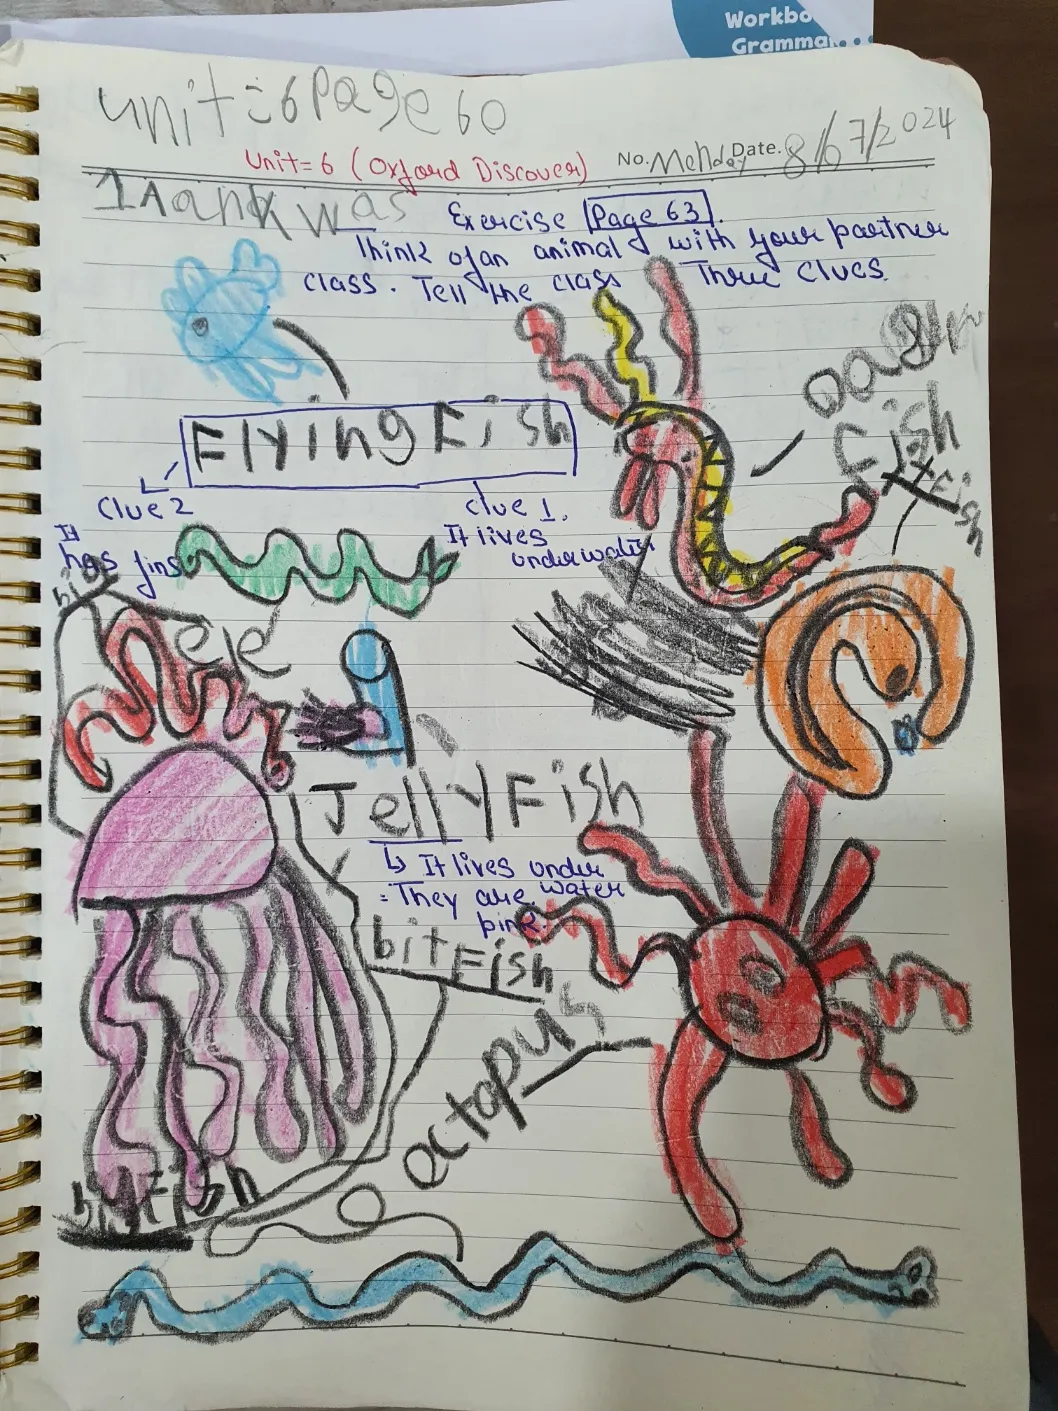 Workbo
Gramma
unit=6Page60
Unit=6 (Oxford Discover) No. Menday Date. 8/07/2024
was
Exercise Page 63.
Think of an animal with your partner
class. Tell the class Three Clues.
FlyingFish
Fish
Fish
Clue 2
clue 1.
It
has fins
It lives
underwater
JellyFish
↳ It lives under
water
= They are
pink.
bitFish
ectopus